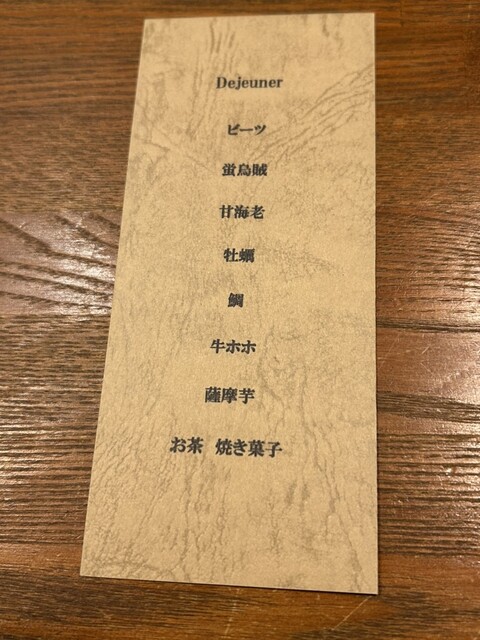 Dejeuner
ビーツ
蛍烏賊
甘海老
牡蠣
鯛
牛ホホ
薩摩芋
お茶 焼き菓子